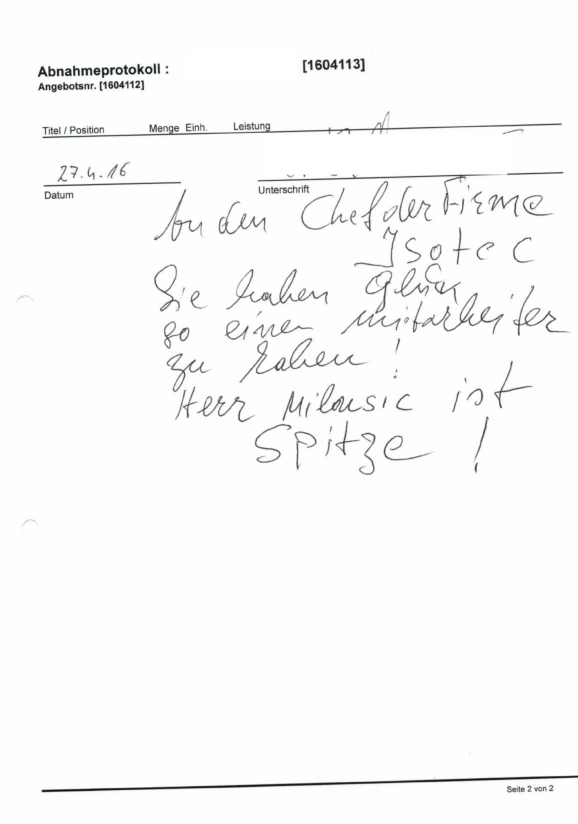 Abnahmeprotokoll : [1604113]
Angebotsnr. [1604112]
Titel / Position Menge Einh. Leistung
27.4.16
Datum Unterschrift
An den Chef der Firma
Isotec
Sie haben Glück
so einen mitarbeiter
zu haben !
Herr Milousic ist
Spitze !
Seite 2 von 2